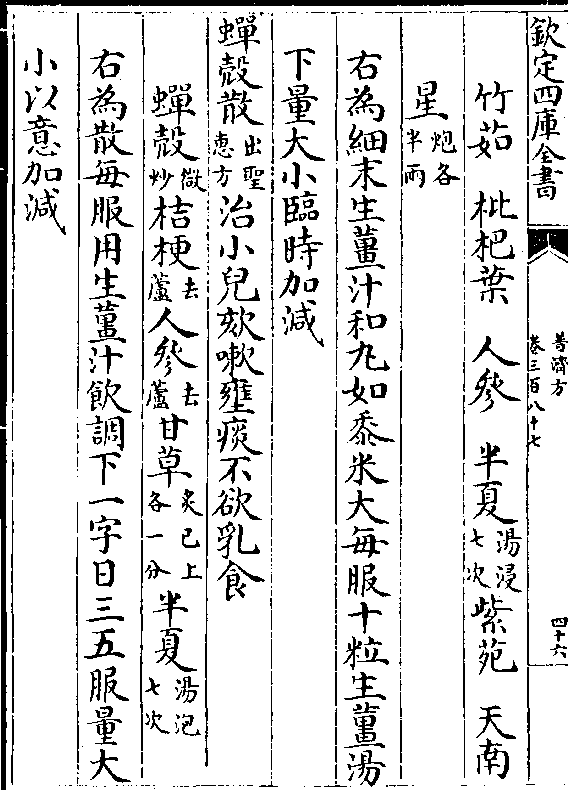 欽定四庫全書
普濟方
卷三百八十七
四十六
竹茹 枇杷葉 人參 半夏湯浸七次紫苑 天南
星炮各半兩
右為細末生薑汁和丸如黍米大每服十粒生薑湯
下量大小臨時加減
蟬殼散出聖惠方治小兒欬嗽壅痰不欲乳食
蟬殼微炒桔梗去蘆人參去蘆甘草炙已上各一分半夏湯泡七次
右為散每服用生薑汁飲調下一字日三五服量大
小以意加減